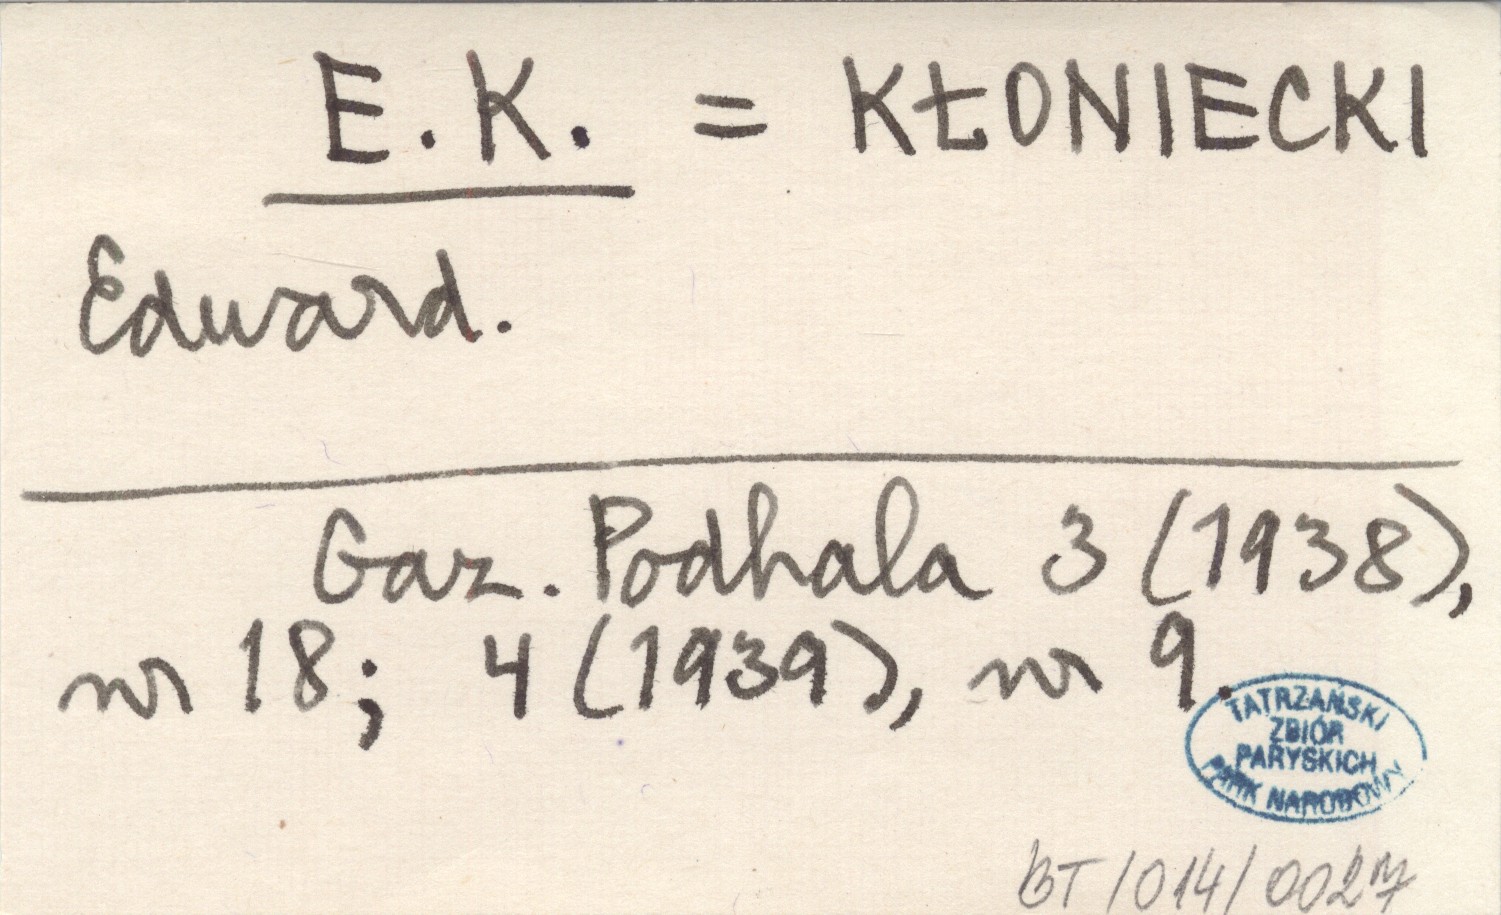 E. K. = KŁONIECKI
Edward.
Gaz. Podhala 3 (1938),
nr 18; 4 (1939), nr 9.
TATRZAŃSKI
ZBIÓR
PARYSKICH
PARK NARODOWY
BT/014/0027